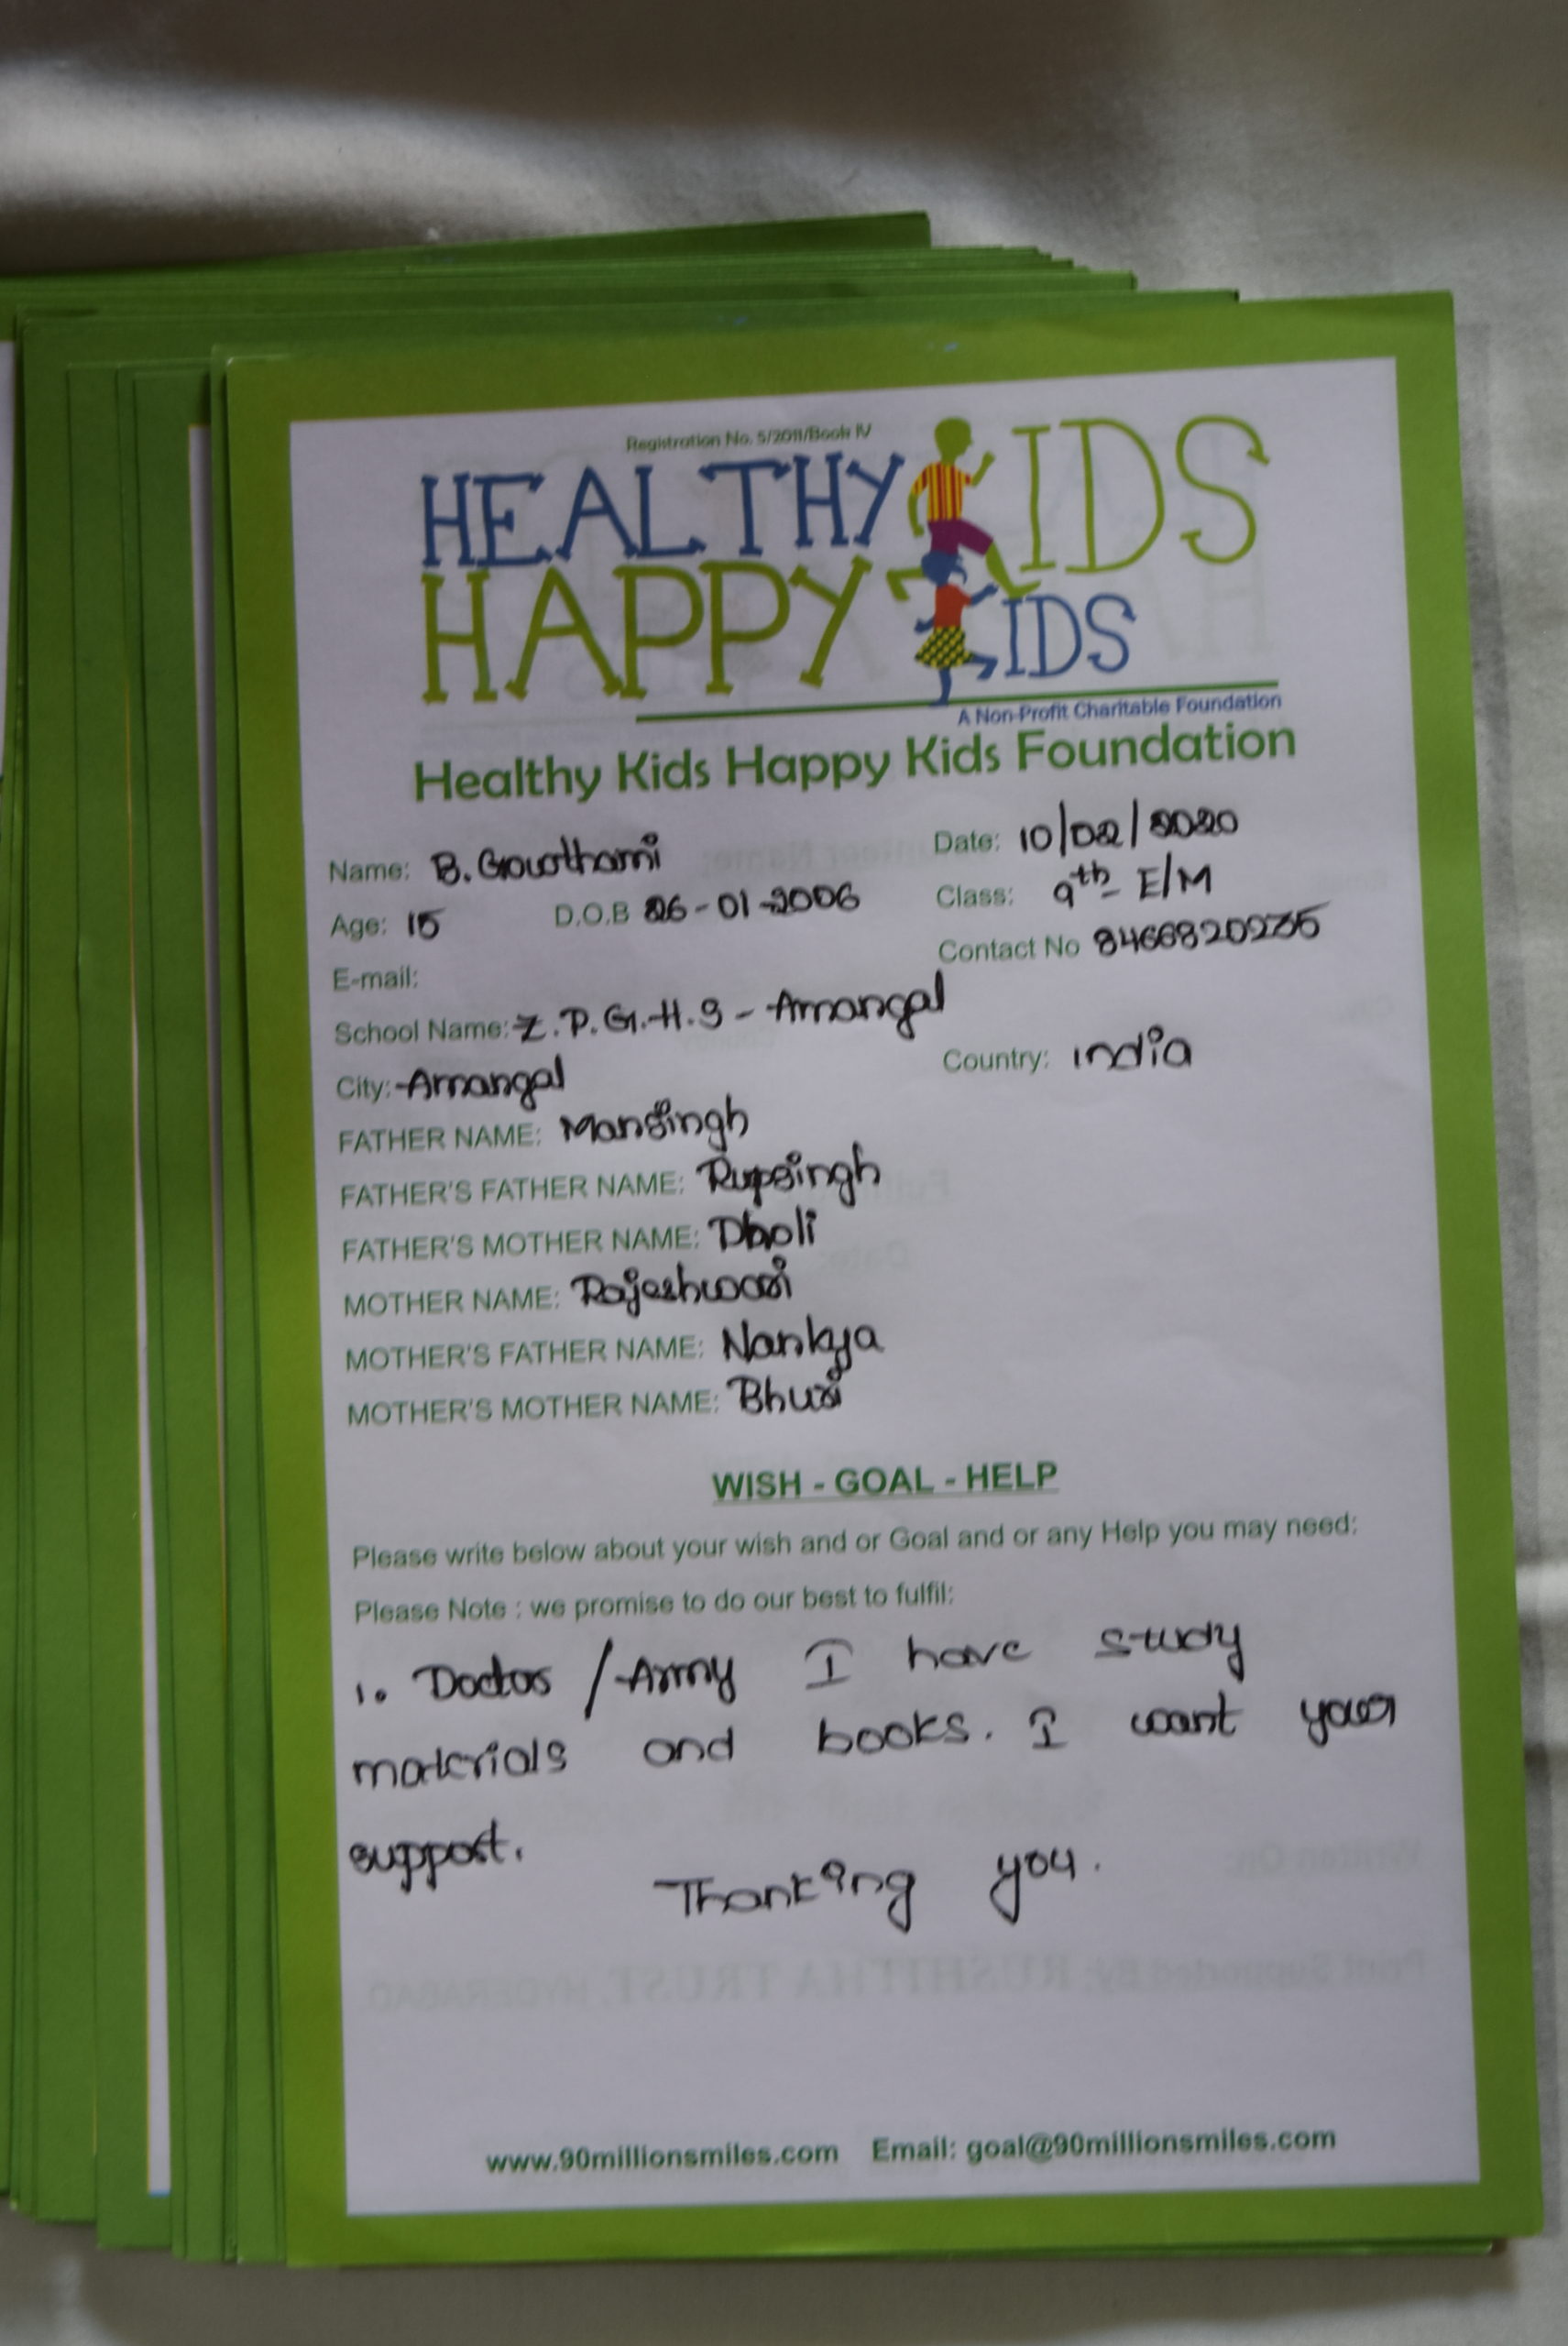 Registration No. 5/2011/Book IV
HEALTHY KIDS
HAPPY KIDS
A Non-Profit Charitable Foundation
Healthy Kids Happy Kids Foundation
Name: B. Gowthami Date: 10/02/2020
Age: 15 D.O.B 26-01-2006 Class: 9th E/M
E-mail: Contact No 8466820235
School Name: Z.P.G.H.S - Amangal
City: Amangal Country: india
FATHER NAME: Mansingh
FATHER'S FATHER NAME: Rupsingh
FATHER'S MOTHER NAME: Dholi
MOTHER NAME: Rajeshwari
MOTHER'S FATHER NAME: Nankya
MOTHER'S MOTHER NAME: Bhuri
WISH - GOAL - HELP
Please write below about your wish and or Goal and or any Help you may need:
Please Note : we promise to do our best to fulfil:
1. Doctor / Army I have study
materials and books. I want your
support.
Thanking you.
www.90millionsmiles.com Email: goal@90millionsmiles.com